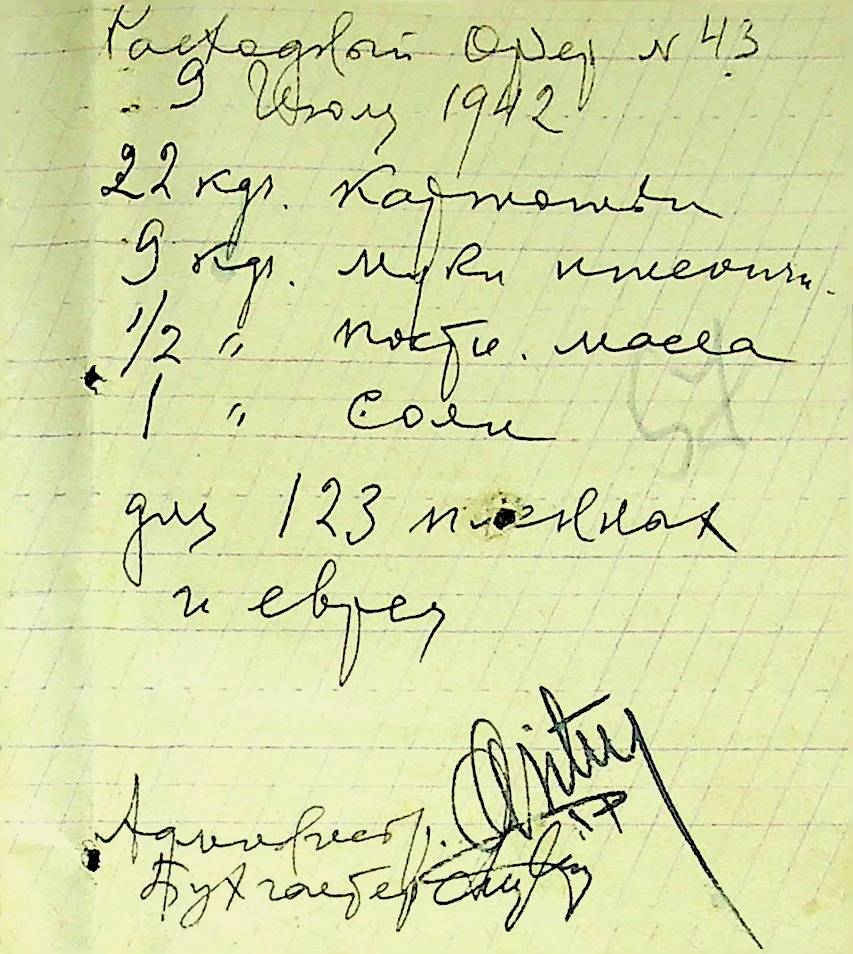 Расходный Ордер N 43
9 Июля 1942
22 кгр. Картошки
9 кгр. муки пшенич.
1/2 " постн. масла
1 " Соли
для 123 пленных
и еврея
Администр.
Бухгалтер